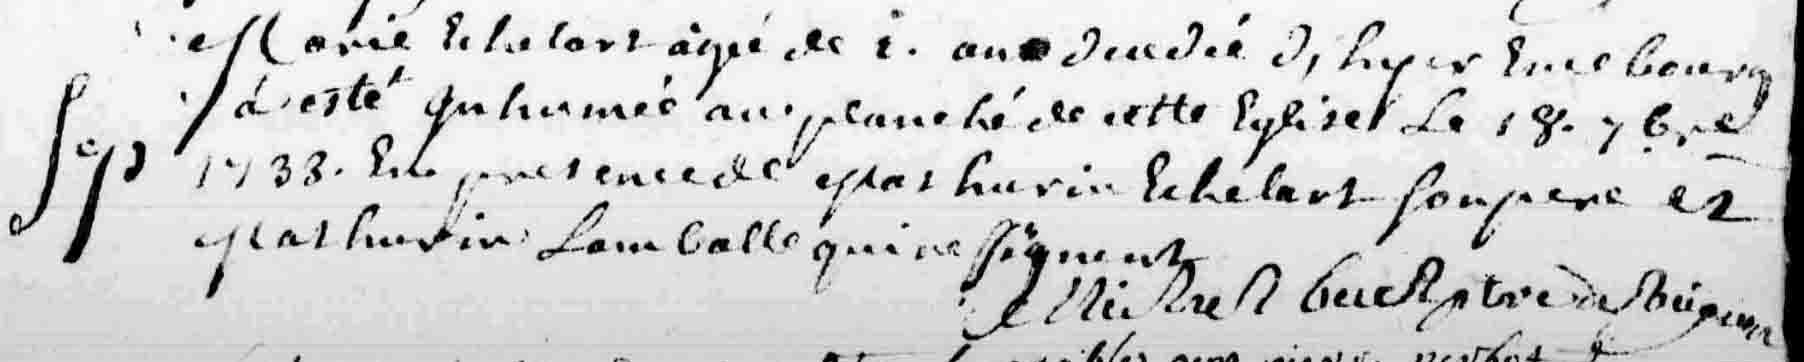 Marie Echelart agée de 2. ans decedé d'hyer En ce bourg
Sep a esté Inhumée au planché de cette Eglise Le 18. 7bre
1733. En presence de Mathurin Echelart son pere et
Mathurin Lamballe qui ne signent
Michel ptre